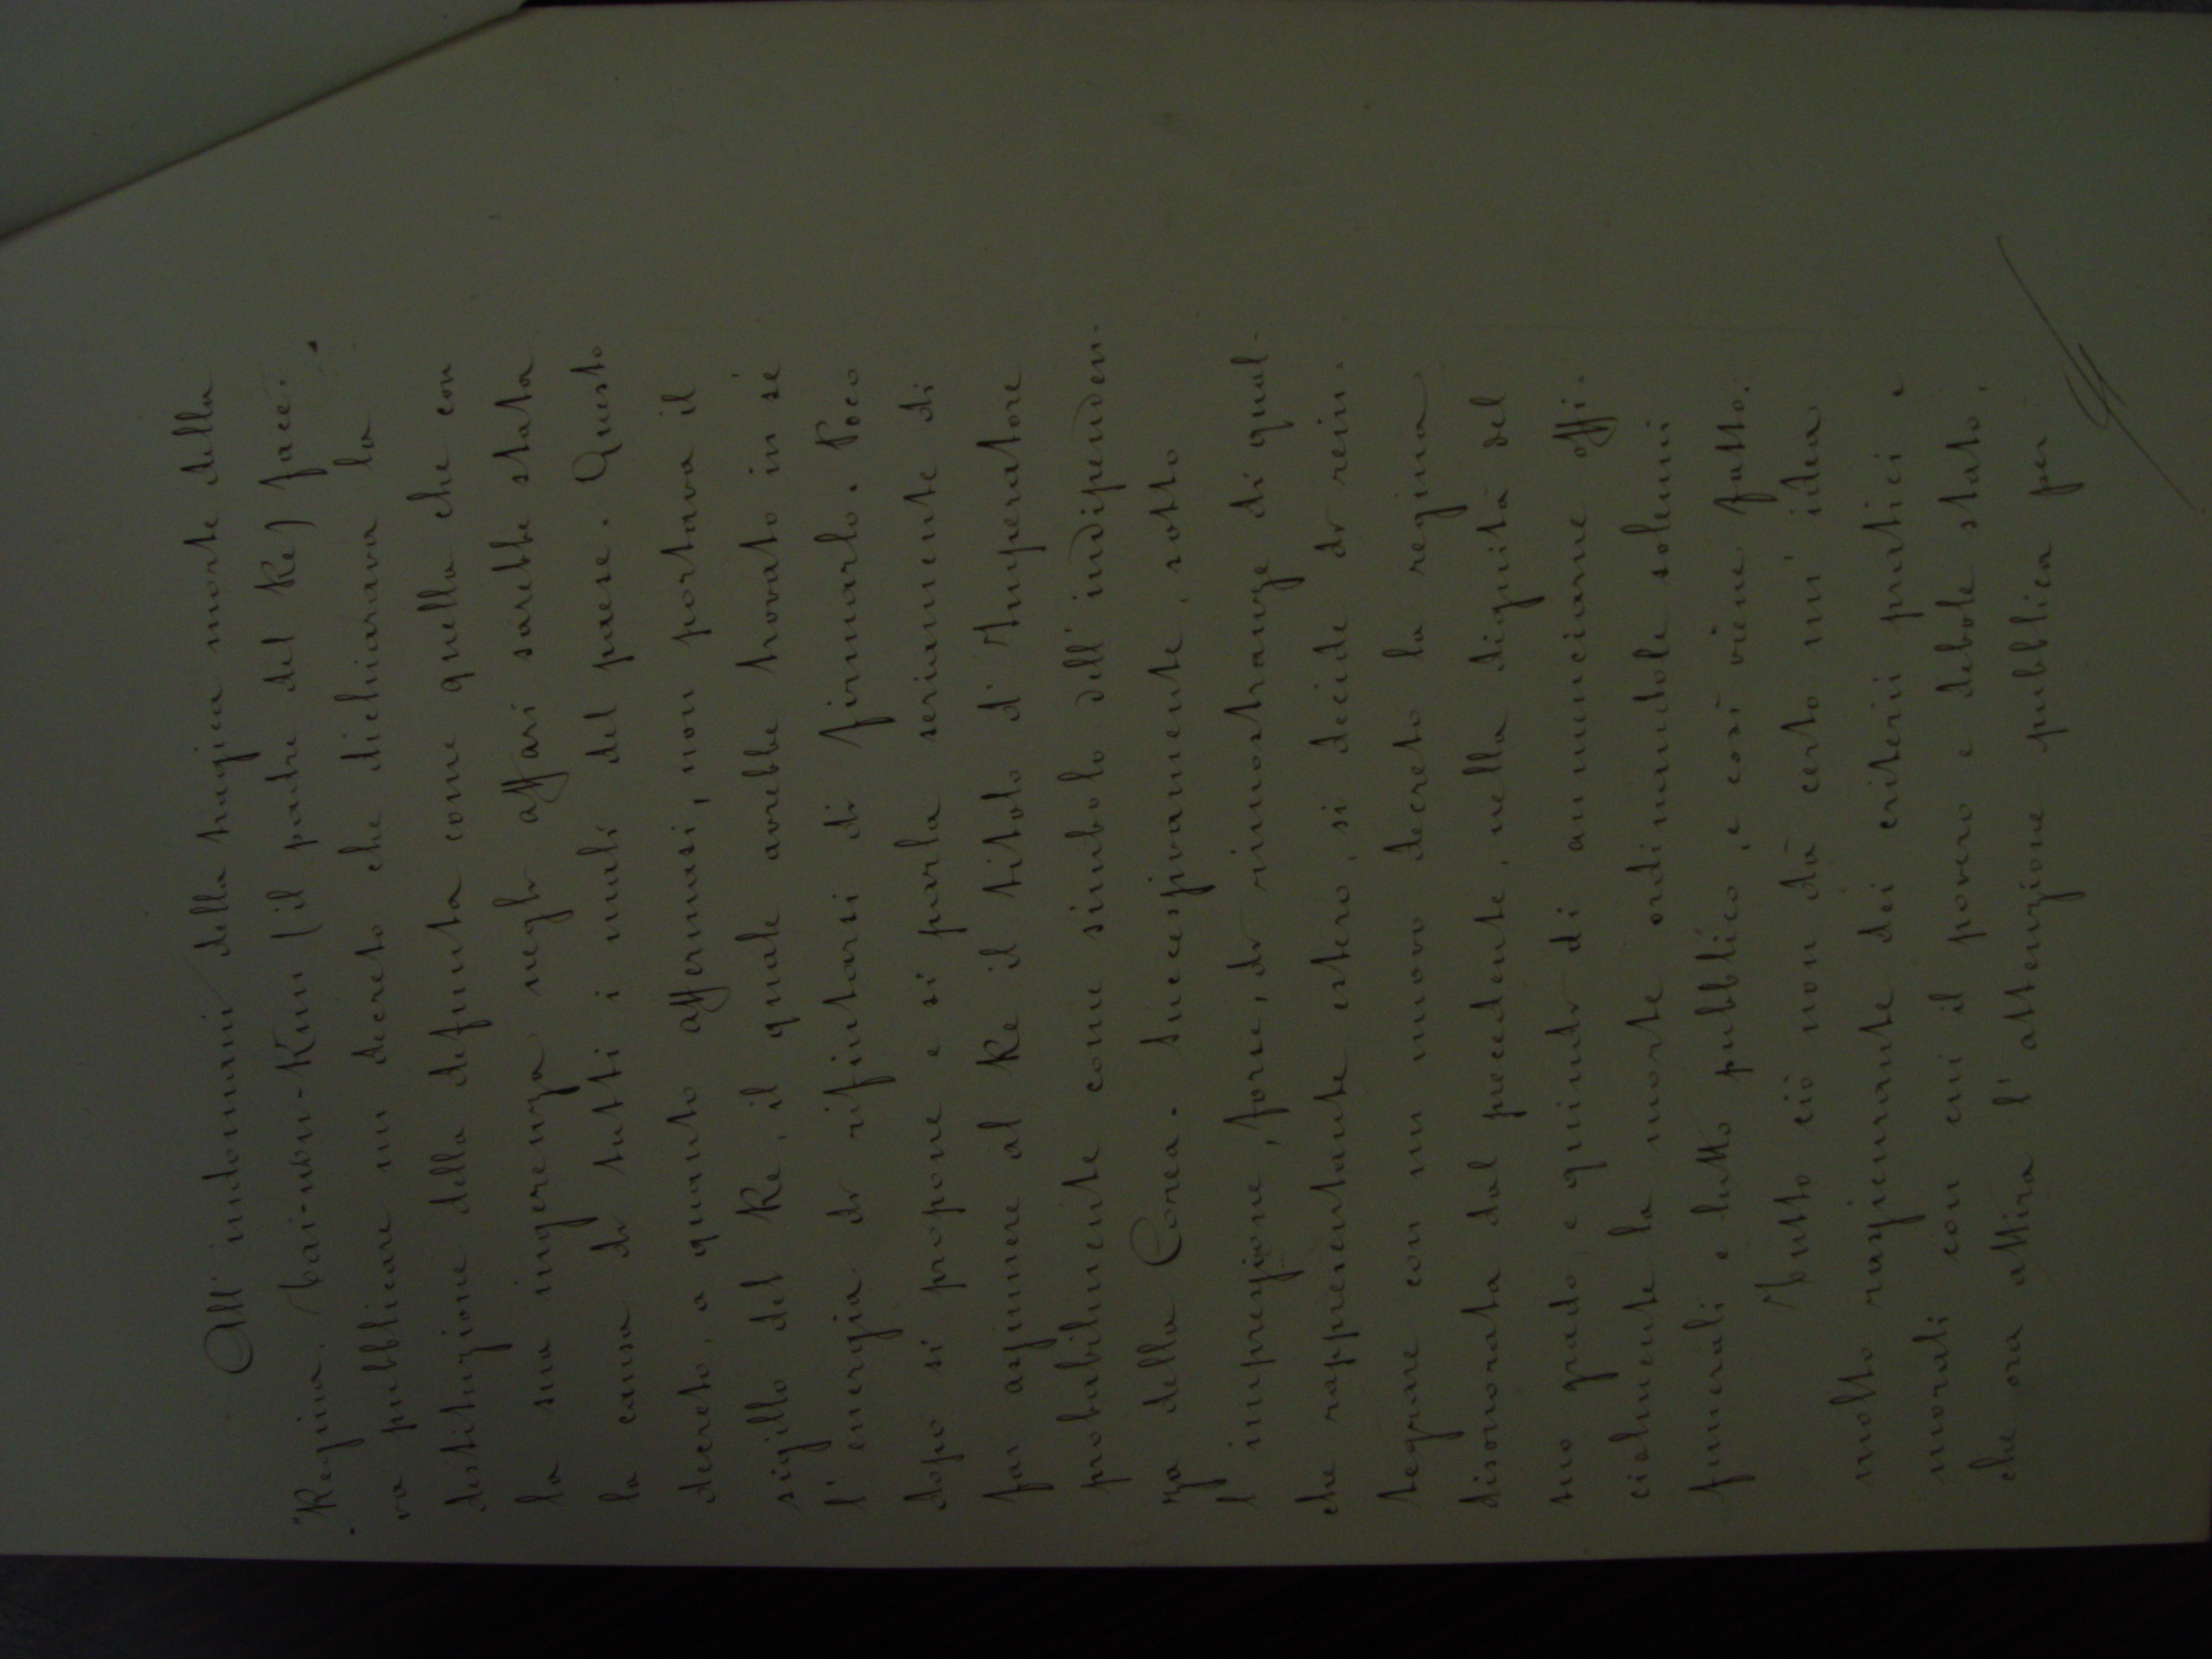 All' indomani della tragica morte della
Regina, Tai-won-Kun (il padre del Re) face-
va pubblicare un decreto che dichiarava la
destituzione della defunta come quella che con
la sua ingerenza negli affari sarebbe stata
la causa di tutti i mali del paese. Questo
decreto, a quanto affermasi, non portava il
sigillo del Re, il quale avrebbe trovato in sé
l'energia di rifiutarsi di firmarlo. Poco
dopo si propone e si parla seriamente di
far assumere al Re il titolo d'Imperatore
probabilmente come simbolo dell'indipenden-
za della Corea. Successivamente, sotto
l'impressione, forse, di rimostranze di qual-
che rappresentante estero, si decide di rein-
tegrare con un nuovo decreto la regina
disonorata dal precedente, nella dignità del
suo grado, e quindi di annunciarne offi-
cialmente la morte ordinandole solenni
funerali e lutto pubblico, e così viene fatto.
Tutto ciò non dà certo un'idea
molto rassicurante dei criterii pratici e
morali con cui il povero e debole stato,
che ora attira l'attenzione pubblica per